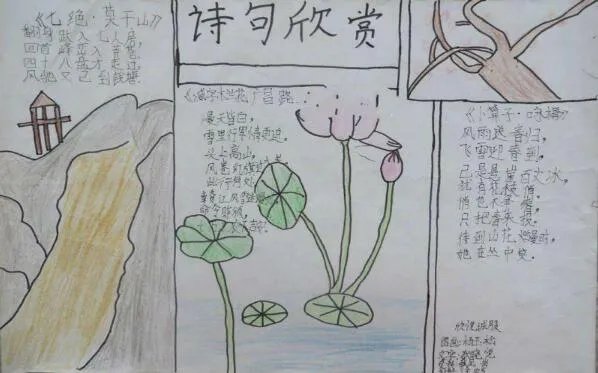 诗句欣赏
《七绝·莫干山》
翻身跃入七人房,
回首峰峦入莽苍。
四十八盘才走过,
风驰又已到钱塘。
《减字木兰花 广昌路
漫天皆白,
雪里行军情更迫。
头上高山,
风卷红旗过
此行何处
命令昨颁,
《卜算子·咏梅》
风雨送春归,
飞雪迎春到,
已是悬崖百丈冰,
犹有花枝俏。
俏也不争春,
只把春来报。
待到山花烂漫时,
她在丛中笑。